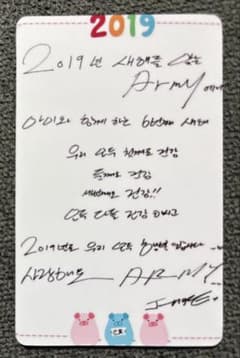 2019
2019년 새해를 맞는
Army에게
아미와 함께 하는 6번째 새해
우리 모두 첫째도 건강
둘째도 건강
세번째도 건강!!
모두 다들 건강
2019년도 우리 모두
사랑해요 ARMY